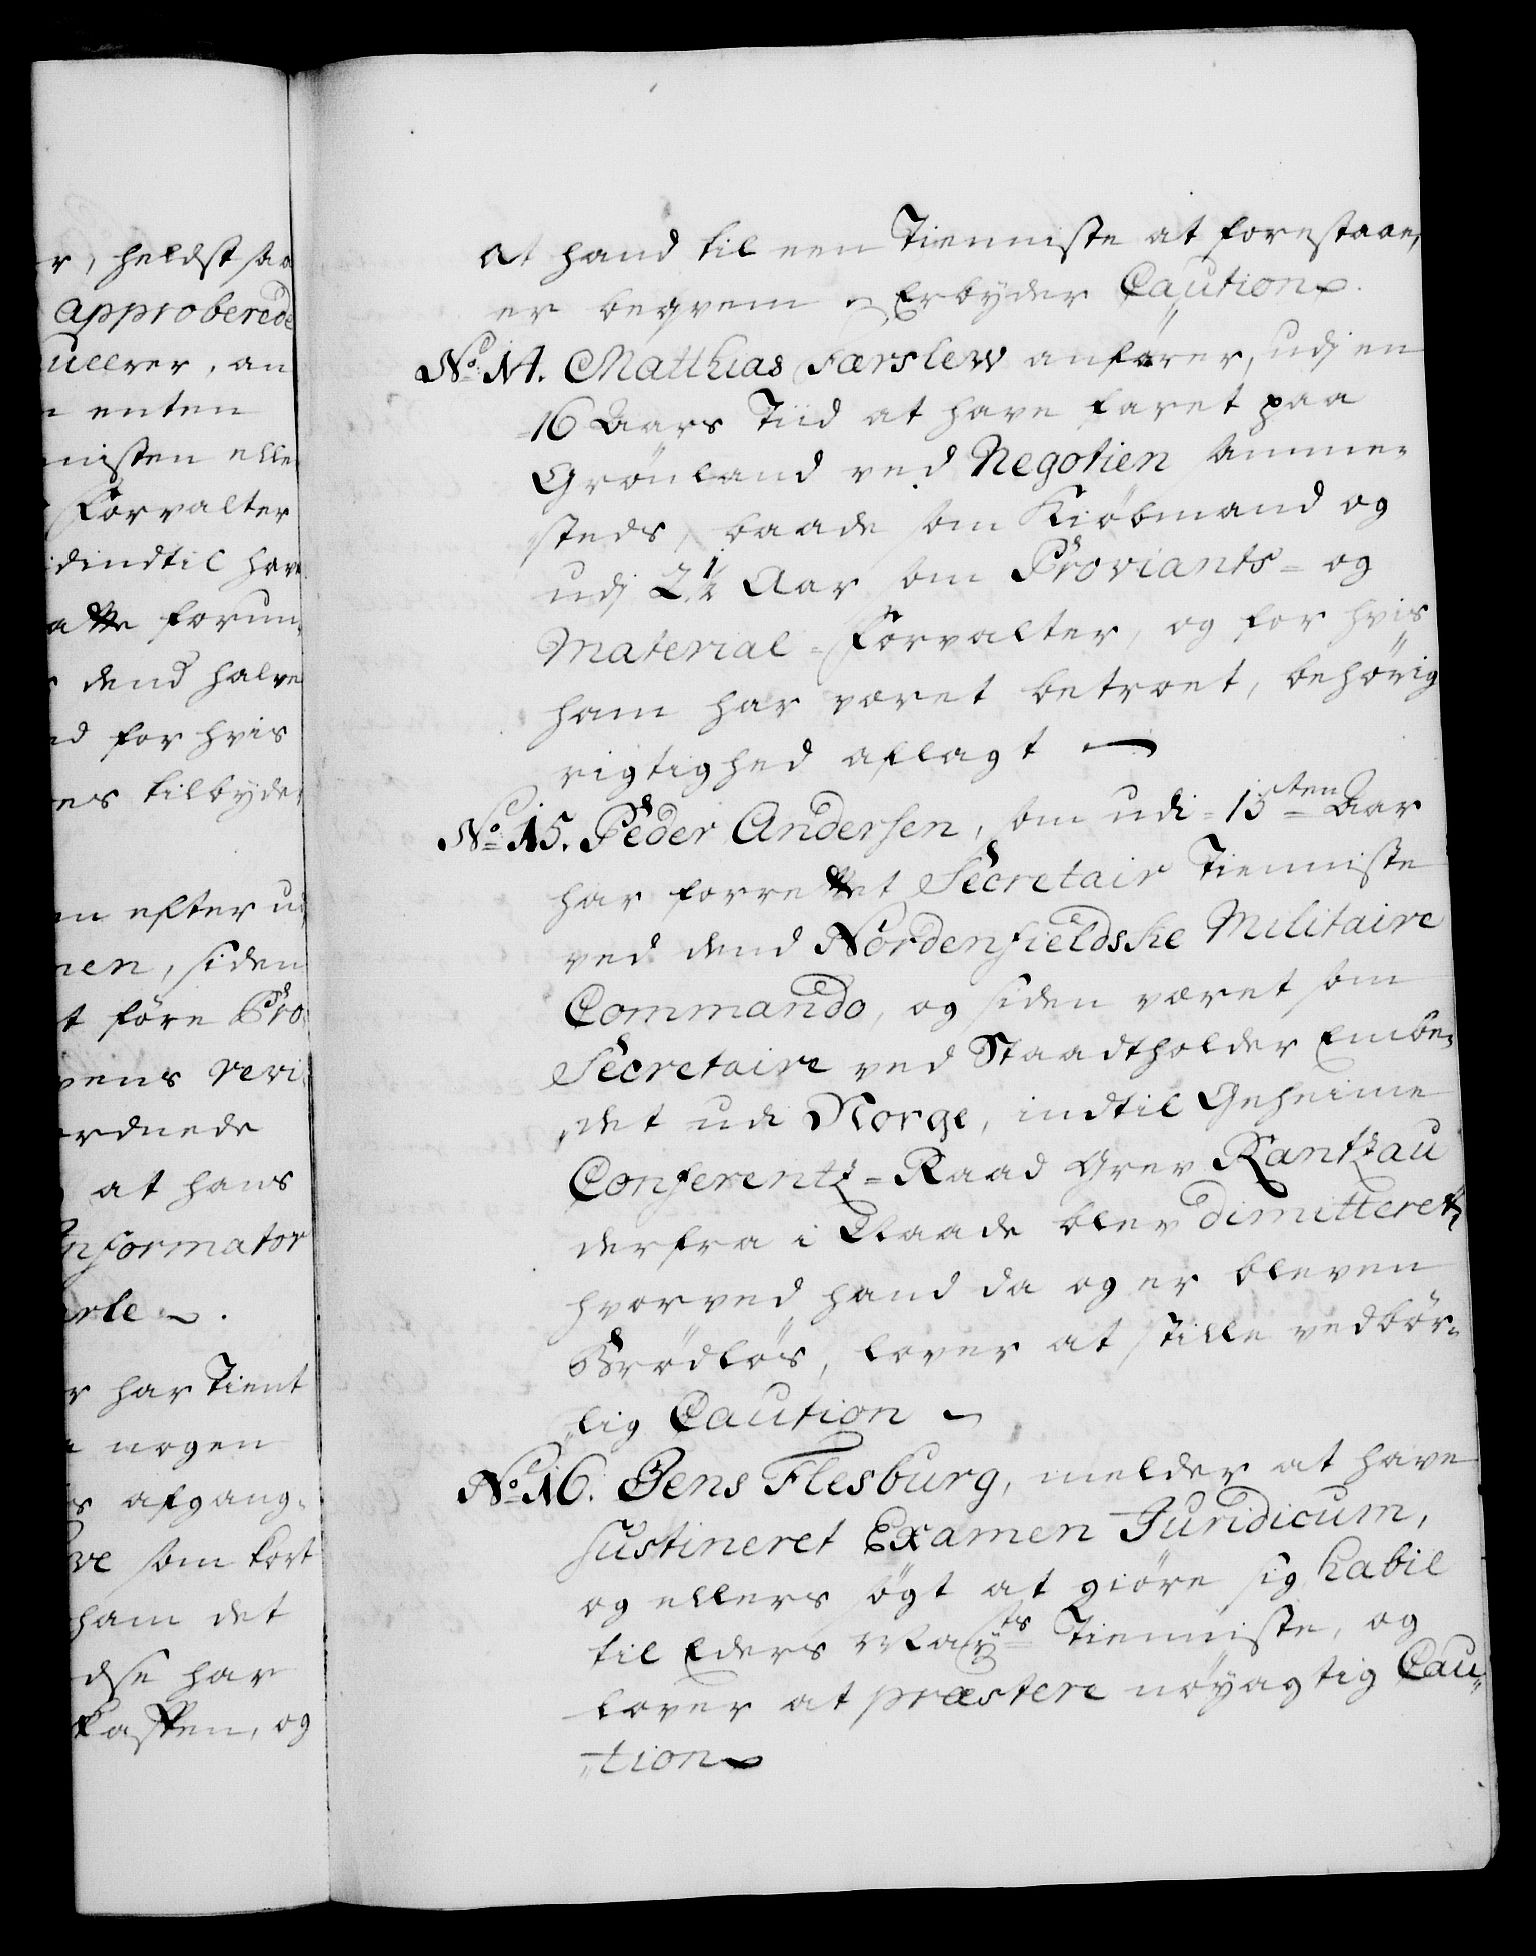 r, heldst saa
approberede
ullrer, an
enten
nisten elle
Forvalter
dindtil har
atte forun¬
dend halve
d for hvis
es tilbyde
n efter u
nen, siden
t före Pro¬
vens revi¬
ordnede
at hans
Informator
erle.
r har Tient
nogen
s afgang¬
ve som kort
ham det
dse har
Kassen, og
at hand til een Tienniste at forestaae,
er beqvem og Erbyder Caution.
No 14. Matthias Færslew anförer, udj en
16 Aars Tiid at have faret paa
Grönland ved Negotien samme¬
steds, baade som Kiöbmand og
udj 2 1/2 Aar som Proviants- og
Material-Forvalter, og for hvis
ham har været betroet, behörig
rigtighed aflagt
No 15. Peder Andersen, som udi 15ten Aar
har forrettet Secretair Tienniste
ved dend Nordenfieldske Militaire
Commando, og siden været som
Secretaire ved Staadtholder Embe¬
det udi Norge, indtil Geheime
Conferentz-Raad Grev Rantzau
derfra i Naade blev dimitteret,
hvorved hand da og er bleven
Brödlös, lover at stille vedbör¬
lig Caution
No 16. Jens Flesburg, melder at have
sustineret Examen Juridicum,
og ellers sögt at giöre sig habil
til Eders Mayts Tienniste, og
lover at præstere nöyagtig Cau¬
tion